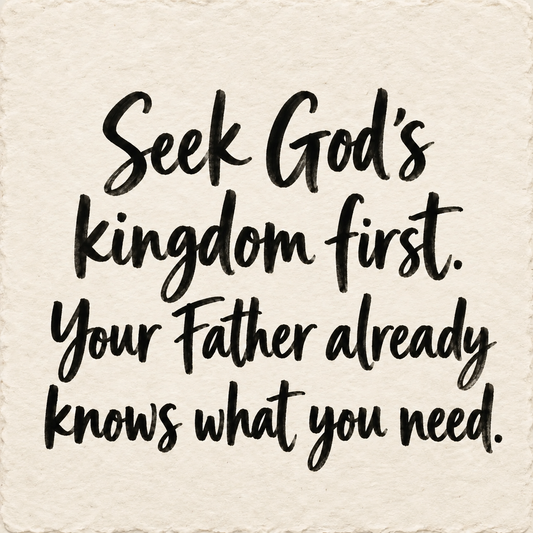 Seek God's
kingdom first.
Your Father already
knows what you need.